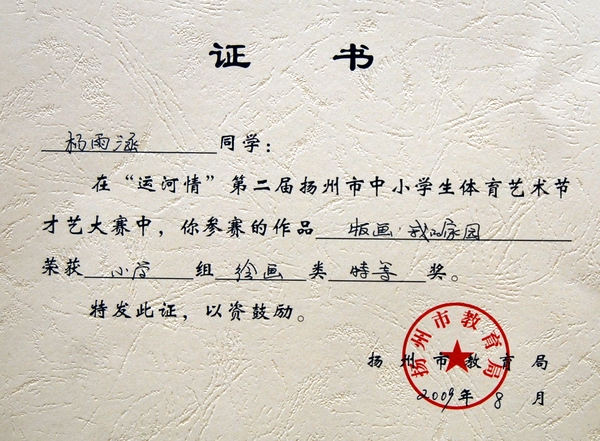 证 书
杨雨涵同学：
在“运河情”第二届扬州市中小学生体育艺术节
才艺大赛中，你参赛的作品 版画·我的家园
荣获 小学 组 绘画 类 特等 奖。
特发此证，以资鼓励。
扬州市教育局
扬州市教育局
2009年 8 月